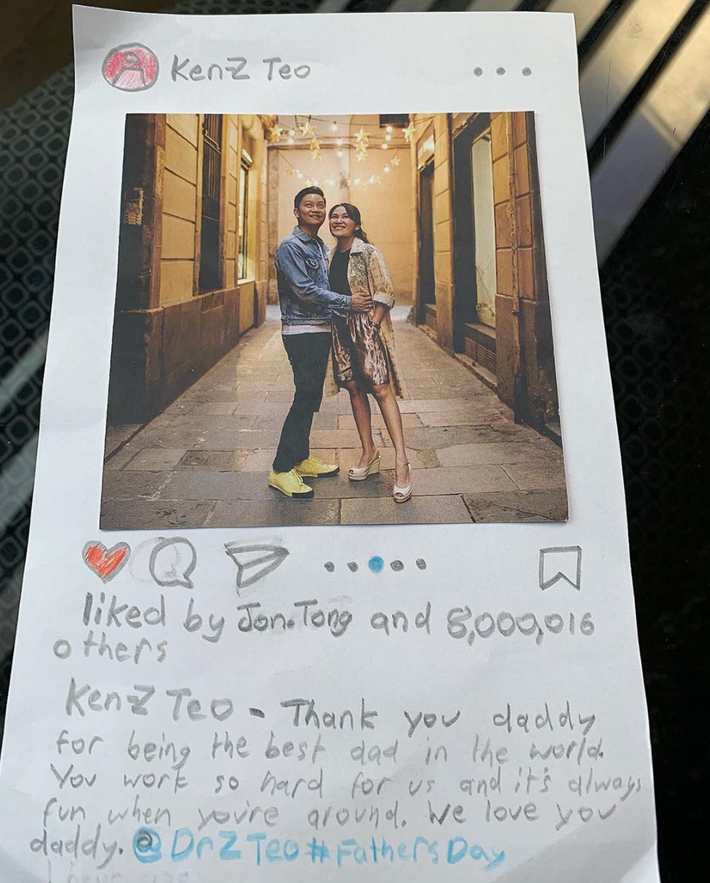 KenZ Teo
liked by Jon.Tong and 8,000,016
others
KenZ Teo - Thank you daddy
for being the best dad in the world.
You work so hard for us and it's always
fun when you're around. We love you
daddy. @DrZTeo#FathersDay
1 hour ago